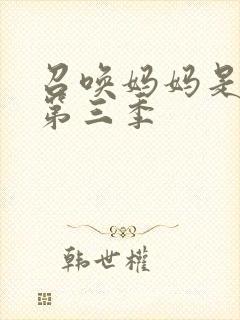 召唤妈妈是
第三季
韩世权